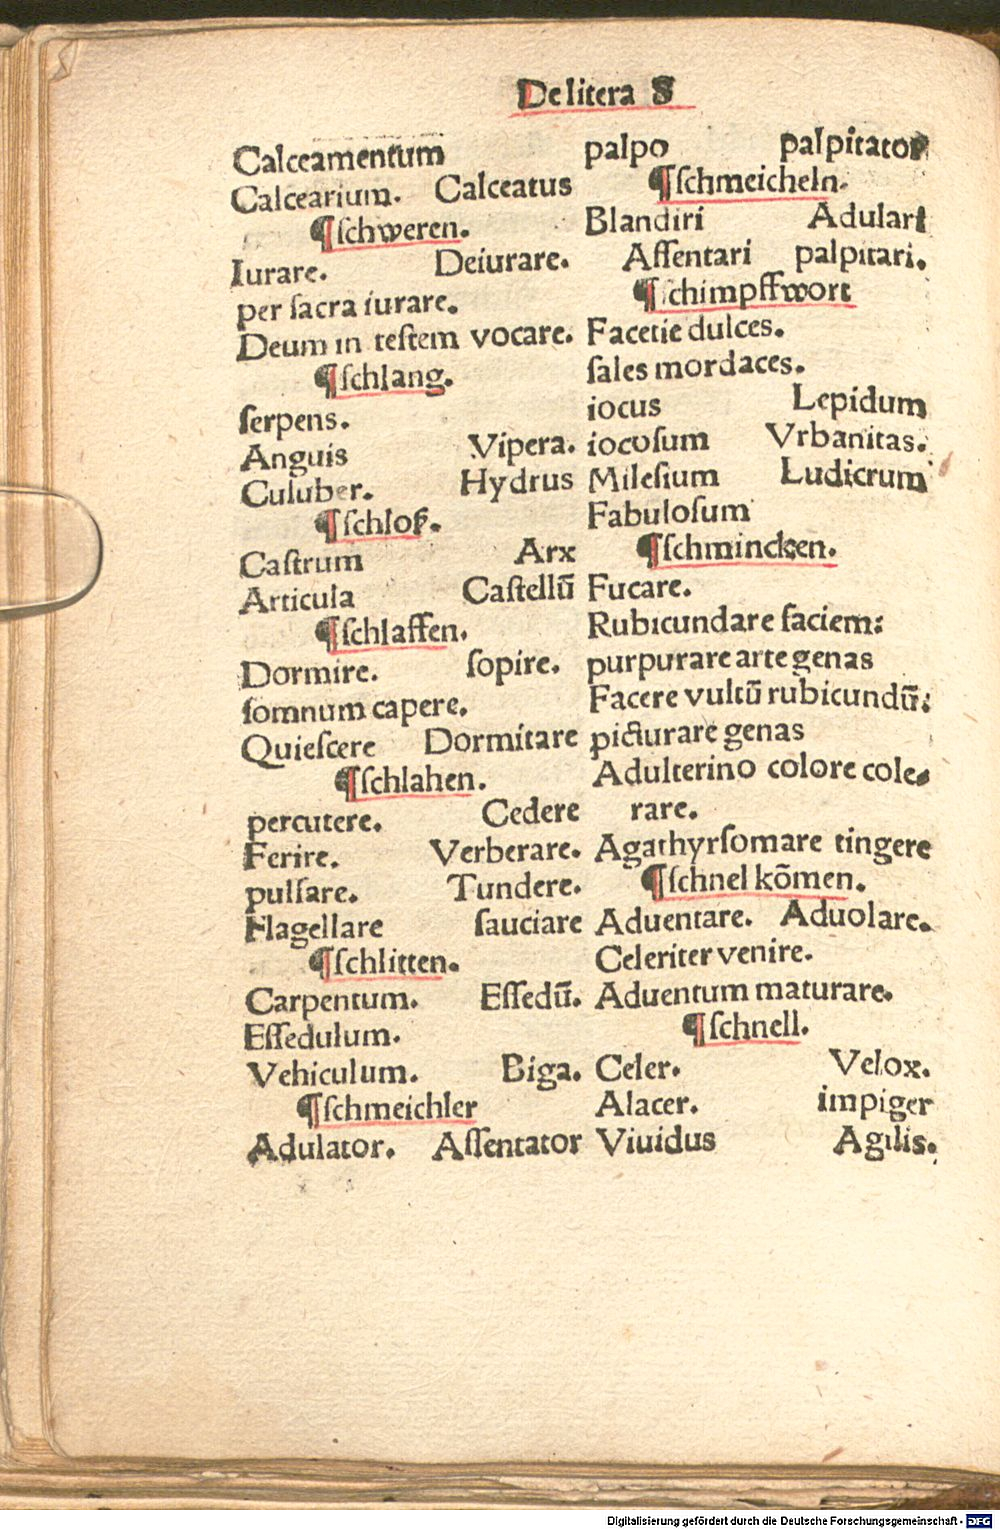 De litera S
Calceamentum
Calcearium. Calceatus
¶ſchweren.
Iurare. Deiurare.
per ſacra iurare.
Deum in teſtem vocare.
¶ſchlang.
ſerpens.
Anguis Vipera.
Culuber. Hydrus
¶ſchloß.
Caſtrum Arx
Articula Caſtellū
¶ſchlaffen.
Dormire. ſopire.
ſomnum capere.
Quieſcere Dormitare
¶ſchlahen.
percutere. Cedere
Ferire. Verberare.
pulſare. Tundere.
Flagellare ſauciare
¶ſchlitten.
Carpentum. Eſſedū.
Eſſedulum.
Vehiculum. Biga.
¶ſchmeichler
Adulator. Aſſentator
palpo palpitator
¶ſchmeicheln.
Blandiri Adulari
Aſſentari palpitari.
¶ſchimpffwort
Facetie dulces.
ſales mordaces.
iocus Lepidum
iocoſum Vrbanitas.
Mileſium Ludicrum
Fabuloſum
¶ſchmincken.
Fucare.
Rubicundare faciem:
purpurare arte genas
Facere vultū rubicundū:
picturare genas
Adulterino colore cole-
rare.
Agathyrſomare tingere
¶ſchnel kōmen.
Aduentare. Aduolare.
Celeriter venire.
Aduentum maturare.
¶ſchnell.
Celer. Velox.
Alacer. impiger
Viuidus Agilis.
Digitalisierung gefördert durch die Deutsche Forschungsgemeinschaft - DFG